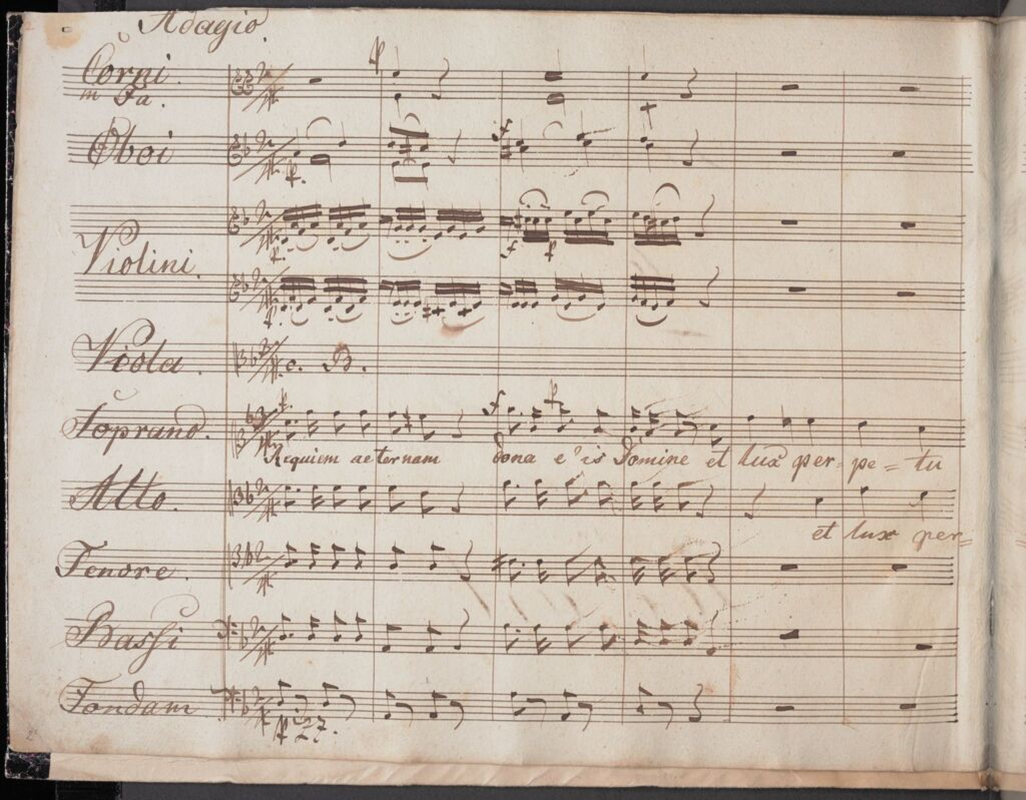 Adagio.
Corni.
in Fa.
Oboi
Violini.
Viola. c. B.
Soprano.
Requiem aeternam dona eis Domine et lux per- pe = tu
Alto.
et lux per=
Tenore.
Bassi
Fondam